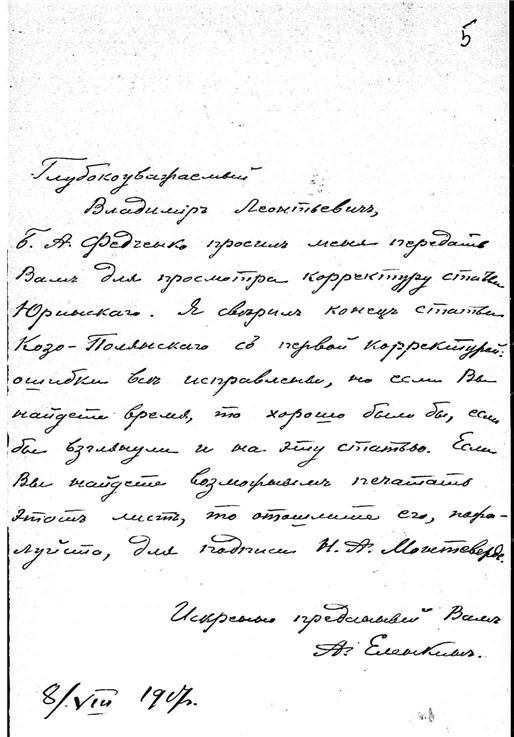 5
Глубокоуважаемый
Владимiръ Леонтьевичъ,
Б. А. Федченко просилъ меня передать
Вамъ для просмотра корректуру статьи
Юринскаго. Я сверилъ конецъ статьи
Козо-Полянскаго съ первой корректурой:
ошибки всѣ исправлены, но если Вы
найдете время, то хорошо было бы, если
бы взглянули и на эту статью. Если
Вы найдете возможнымъ печатать
этотъ листъ, то отошлите его, пожа-
луйста, для подписи Н. А. Монтеверде.
Искренно преданный Вамъ
А. Еленкинъ.
8/VIII 1917г.